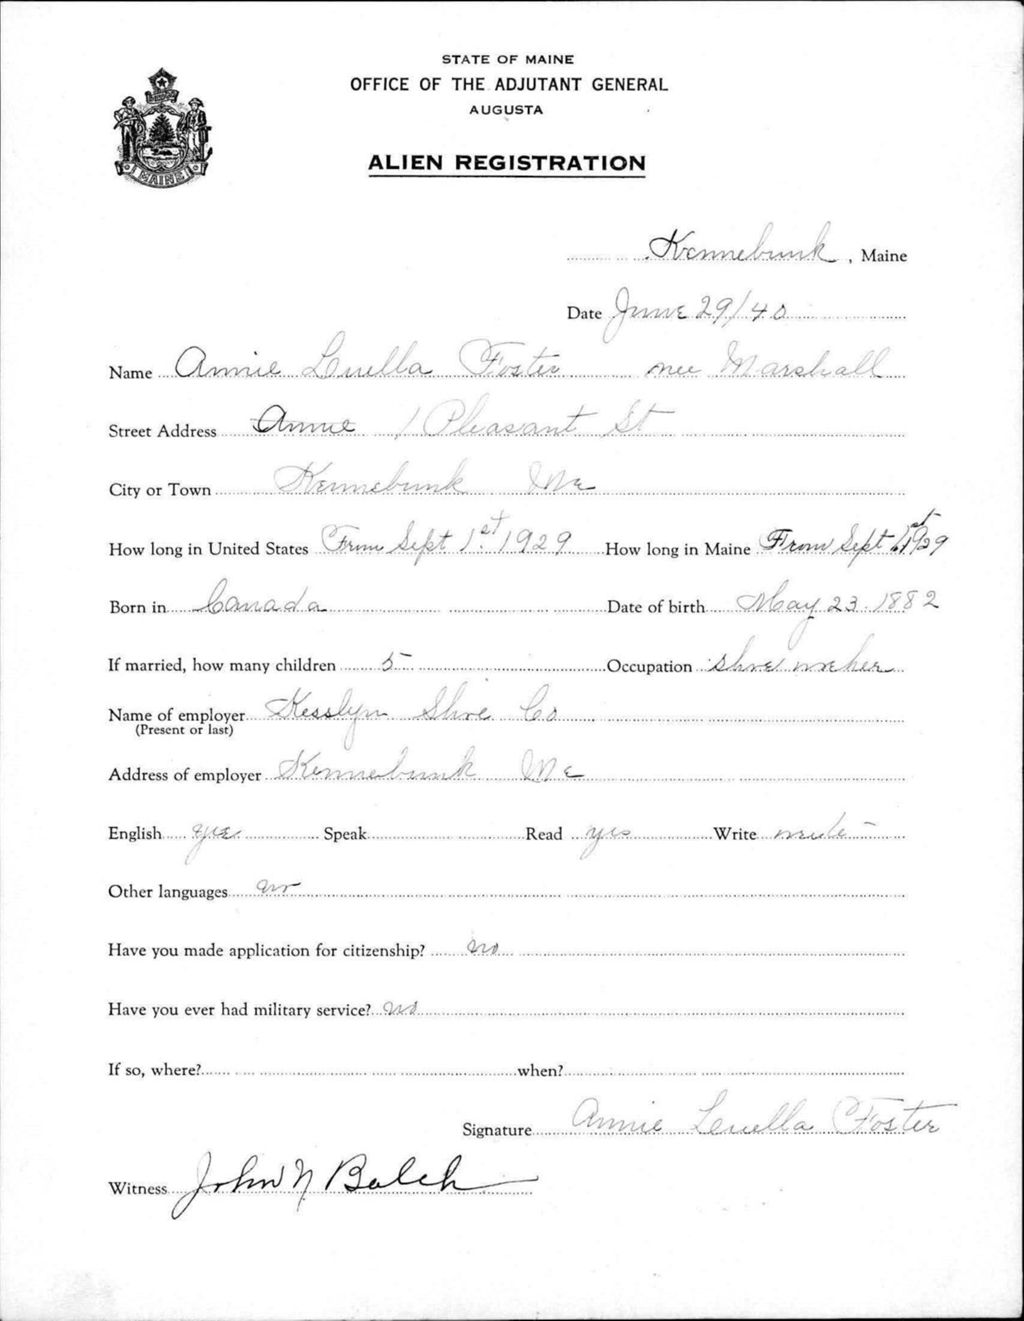 STATE OF MAINE
OFFICE OF THE ADJUTANT GENERAL
AUGUSTA
ALIEN REGISTRATION
MAINE
Kennebunk, Maine
Date June 29/40
Name Annie Luella Foster nee Marshall
Street Address Annie 1 Pleasant St
City or Town Kennebunk Me
How long in United States From Sept 1st 1929 How long in Maine From Sept 1st 1929
Born in Canada Date of birth May 23. 1882
If married, how many children 5 Occupation shoe worker
Name of employer Kesslyn Shoe Co
(Present or last)
Address of employer Kennebunk Me
English yes Speak Read yes Write
Other languages no
Have you made application for citizenship? no
Have you ever had military service? no
If so, where? when?
Signature Annie Luella Foster
Witness John N Balch